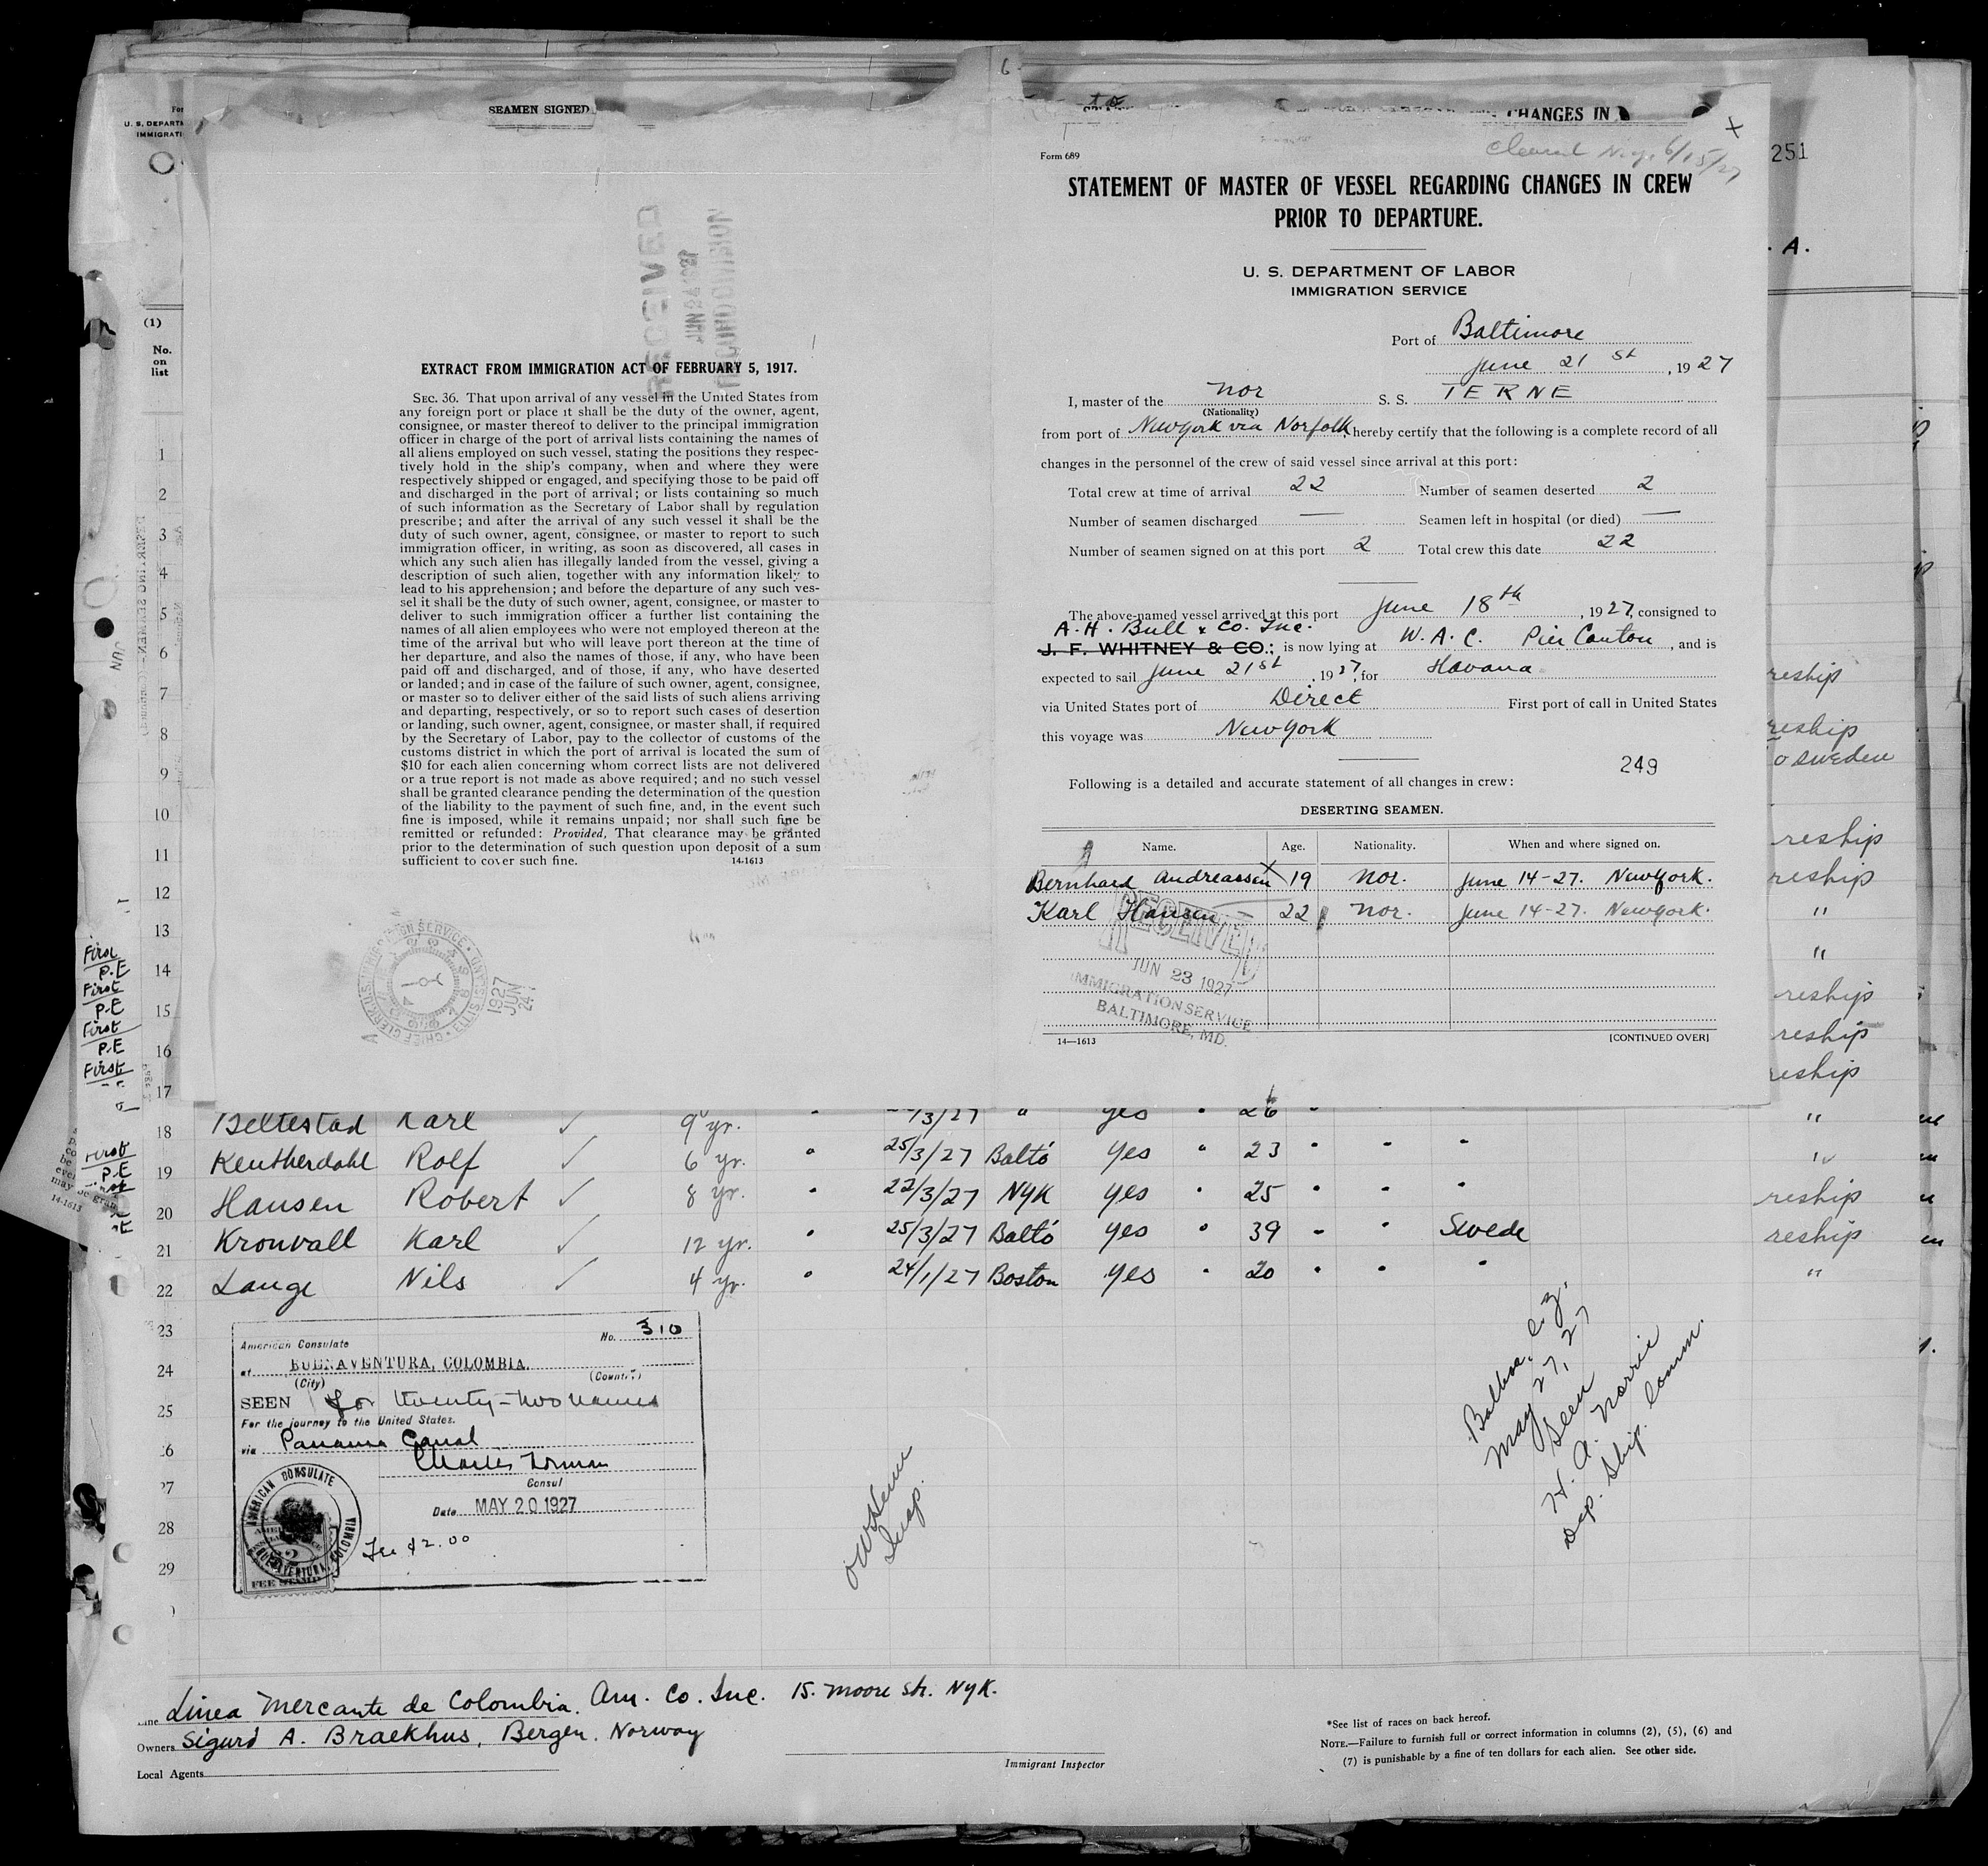 SEAMEN SIGNED
CHANGES IN
6
U. S. DEPARTM
IMMIGRATI
(1)
No.
on
list
251
. A.
RECEIVED
EXTRACT FROM IMMIGRATION ACT OF FEBRUARY 5, 1917.
SEC. 36. That upon arrival of any vessel in the United States from
any foreign port or place it shall be the duty of the owner, agent,
consignee, or master thereof to deliver to the principal immigration
officer in charge of the port of arrival lists containing the names of
all aliens employed on such vessel, stating the positions they respec-
tively hold in the ship's company, when and where they were
respectively shipped or engaged, and specifying those to be paid off
and discharged in the port of arrival; or lists containing so much
of such information as the Secretary of Labor shall by regulation
prescribe; and after the arrival of any such vessel it shall be the
duty of such owner, agent, consignee, or master to report to such
immigration officer, in writing, as soon as discovered, all cases in
which any such alien has illegally landed from the vessel, giving a
description of such alien, together with any information likely to
lead to his apprehension; and before the departure of any such ves-
sel it shall be the duty of such owner, agent, consignee, or master to
deliver to such immigration officer a further list containing the
names of all alien employees who were not employed thereon at the
time of the arrival but who will leave port thereon at the time of
her departure, and also the names of those, if any, who have been
paid off and discharged, and of those, if any, who have deserted
or landed; and in case of the failure of such owner, agent, consignee,
or master so to deliver either of the said lists of such aliens arriving
and departing, respectively, or so to report such cases of desertion
or landing, such owner, agent, consignee, or master shall, if required
by the Secretary of Labor, pay to the collector of customs of the
customs district in which the port of arrival is located the sum of
$10 for each alien concerning whom correct lists are not delivered
or a true report is not made as above required; and no such vessel
shall be granted clearance pending the determination of the question
of the liability to the payment of such fine, and, in the event such
fine is imposed, while it remains unpaid; nor shall such fine be
remitted or refunded: Provided, That clearance may be granted
prior to the determination of such question upon deposit of a sum
sufficient to cover such fine. 14-1613
CHIEF CLERK U.S. IMMIGRATION SERVICE · ELLIS ISLAND
1927
JUN
24
Form 689
Cleared N.Y. 6/15/27
STATEMENT OF MASTER OF VESSEL REGARDING CHANGES IN CREW
PRIOR TO DEPARTURE.
U. S. DEPARTMENT OF LABOR
IMMIGRATION SERVICE
Port of Baltimore
June 21st, 1927
I, master of the Nor S. S. TERNE
(Nationality)
from port of Newyork via Norfolk hereby certify that the following is a complete record of all
changes in the personnel of the crew of said vessel since arrival at this port:
Total crew at time of arrival 22 Number of seamen deserted 2
Number of seamen discharged — Seamen left in hospital (or died) —
Number of seamen signed on at this port 2 Total crew this date 22
The above-named vessel arrived at this port June 18th, 1927, consigned to
A. H. Bull & Co. Inc.
J. F. WHITNEY & CO.; is now lying at W. A. C. Pier Canton, and is
expected to sail June 21st, 1927, for Havana
via United States port of Direct First port of call in United States
this voyage was Newyork
249
Following is a detailed and accurate statement of all changes in crew:
DESERTING SEAMEN.
Name. Age. Nationality. When and where signed on.
Bernhard Andreassen 19 Nor. June 14-27. Newyork.
Karl Hansen 22 Nor. June 14-27. Newyork.
RECEIVED
JUN 23 1927
IMMIGRATION SERVICE
BALTIMORE, MD.
14—1613 [CONTINUED OVER]
1
2
3
4
5
6
7 reship
8 reship
9 o Sweden
10
11 reship
12 reship
13 "
First
P.E
14 "
First
P.E
15 reship
First
P.E
16 reship
First
17 reship
18 Beltestad Karl 9 yr. /3/27 " yes " 26 "
19 Keutherdahl Rolf 6 yr. " 25/3/27 Balto yes " 23 " " " "
First
P.E
20 Hansen Robert 8 yr. " 22/3/27 NYK yes " 25 " " " reship
21 Kronvall Karl 12 yr. " 25/3/27 Balto yes " 39 " " Swede reship
22 Lange Nils 4 yr. " 24/1/27 Boston yes " 20 " " " "
23
24
25
26
27
28
29
American Consulate No. 310
at BUENAVENTURA, COLOMBIA.
(City) (Country)
SEEN for twenty-two names
For the journey to the United States.
via Panama Canal
Charles Forman
Consul
Date MAY 20 1927
Fee $2.00
AMERICAN CONSULATE
BUENAVENTURA, COLOMBIA
FEE STAMP
Insp.
Balboa, C.Z.
May 27, 27
Seen
H. A. Norris
Dep. Ship. Comm.
Line Linea Mercante de Colombia. Am. Co. Inc. 15. Moore Str. NYK.
Owners Sigurd A. Braekhus, Bergen. Norway
Local Agents
Immigrant Inspector
*See list of races on back hereof.
NOTE.—Failure to furnish full or correct information in columns (2), (5), (6) and
(7) is punishable by a fine of ten dollars for each alien. See other side.
14-1613